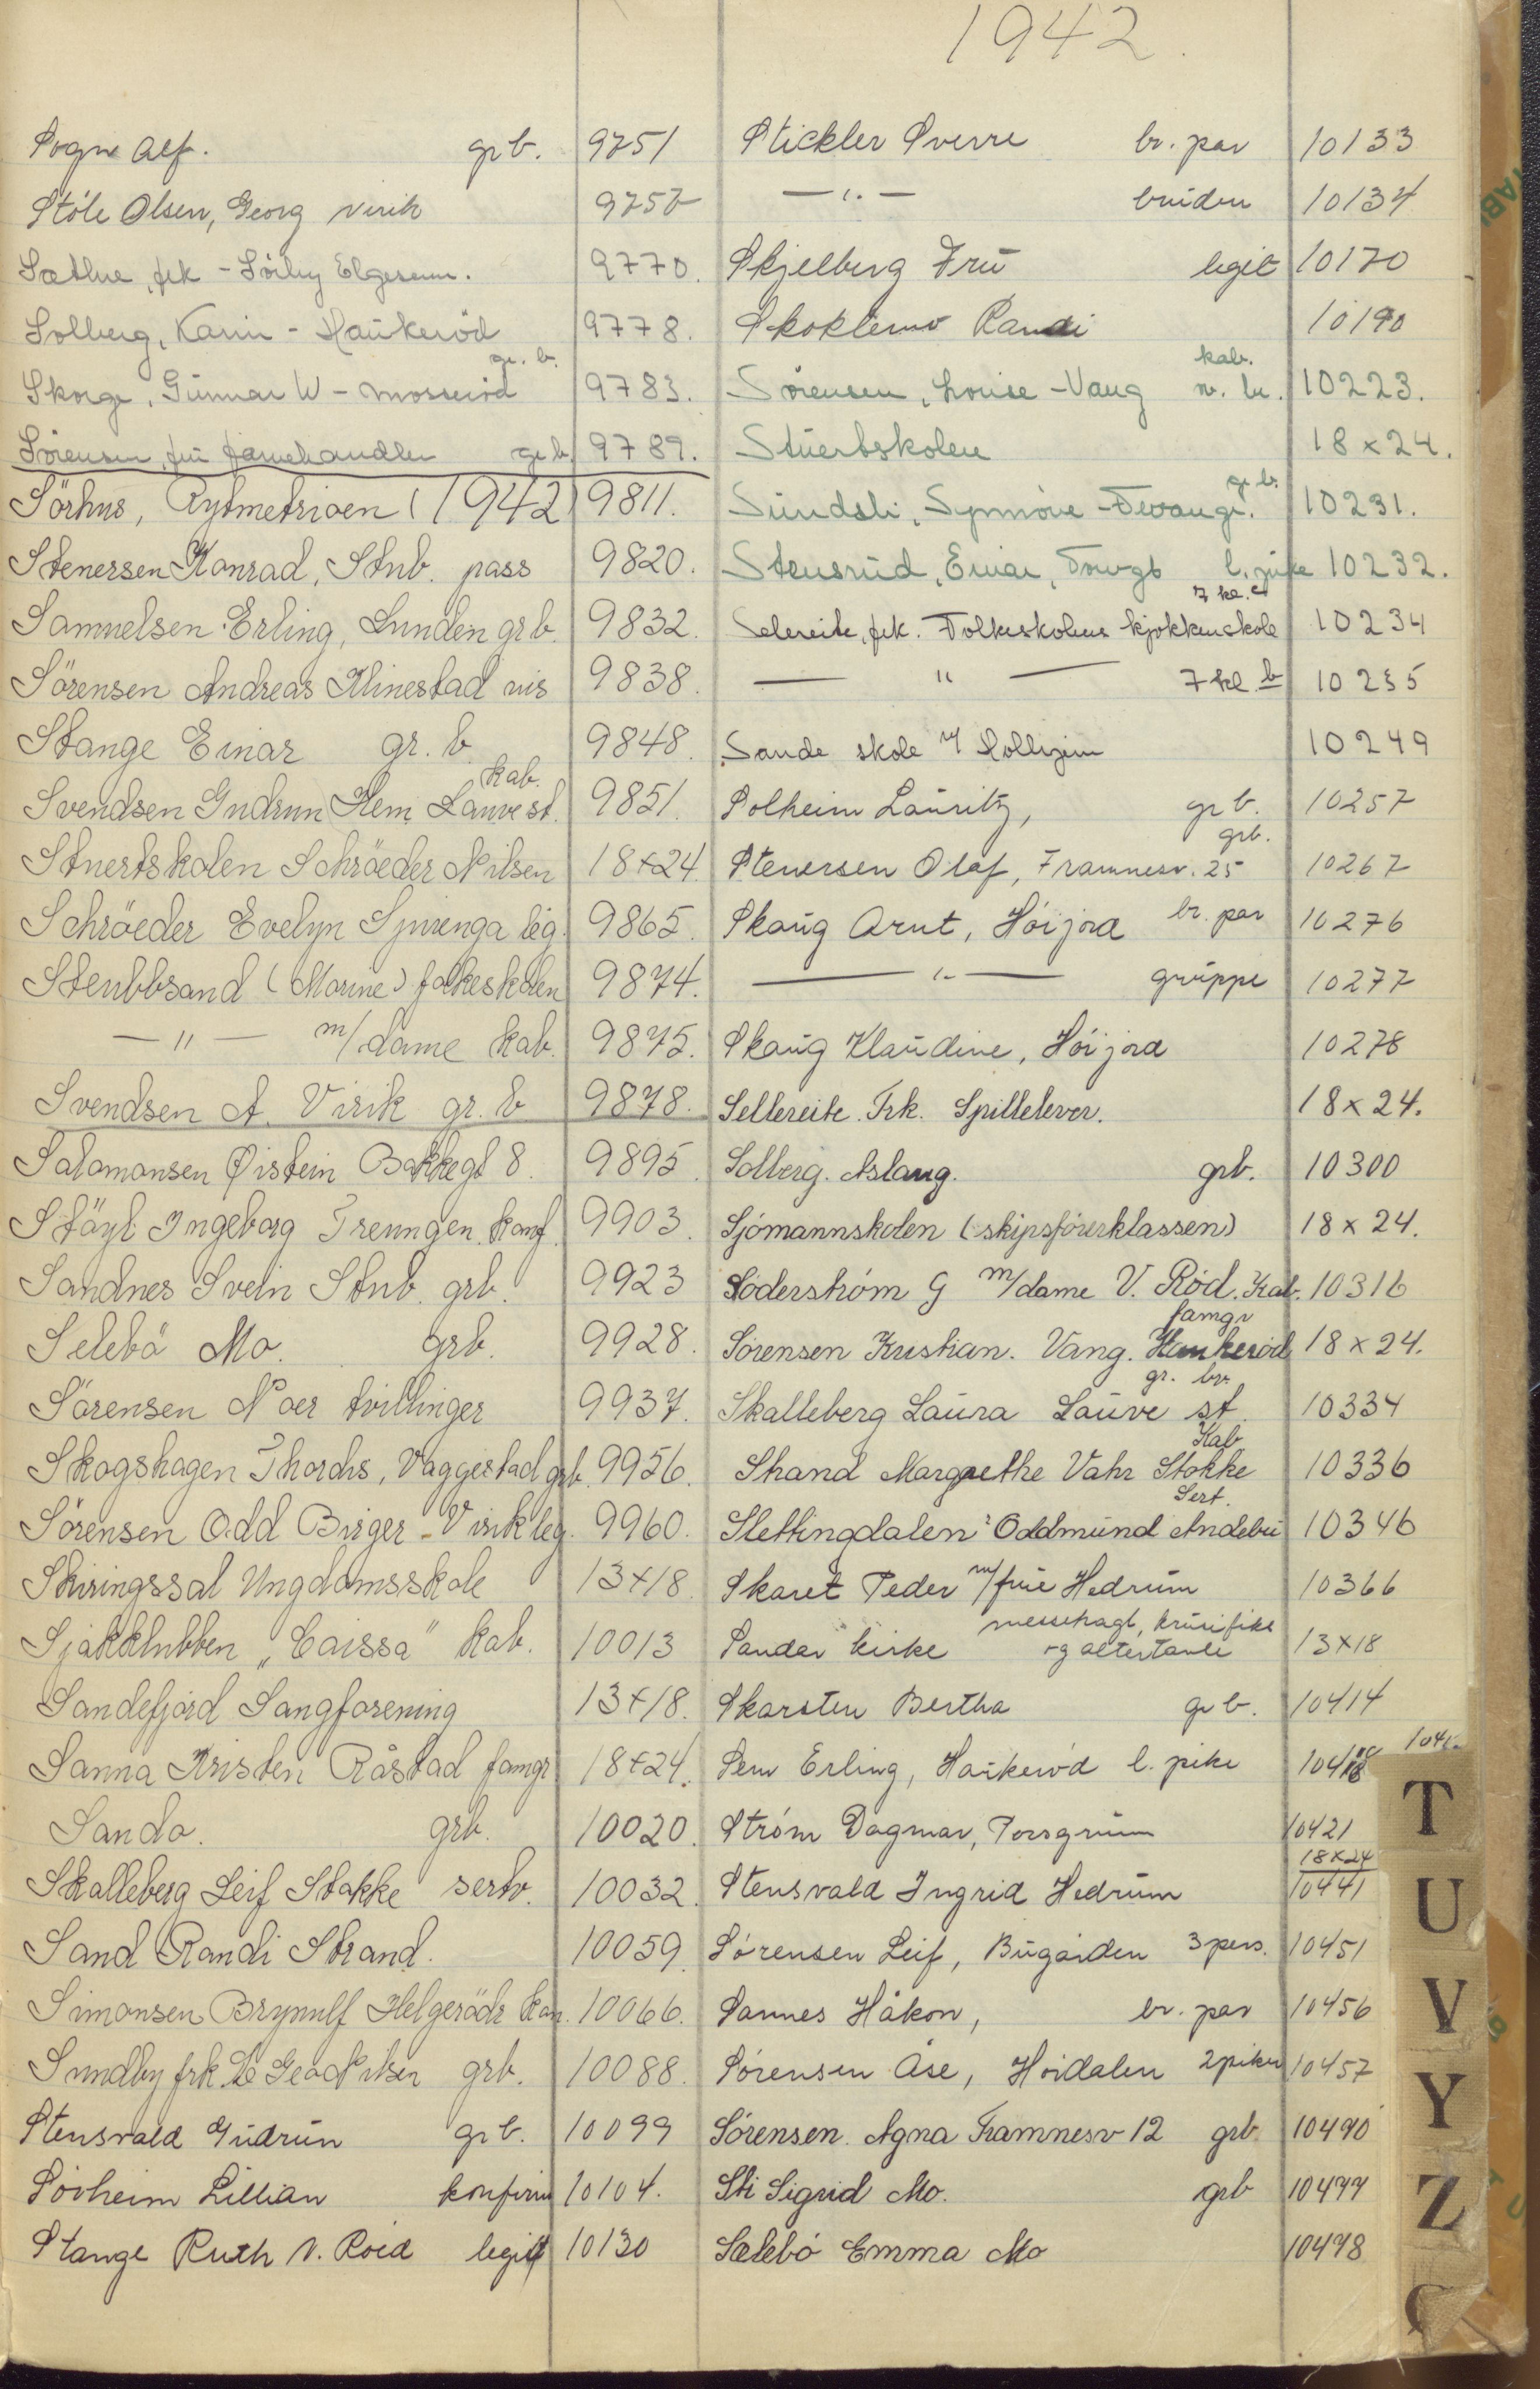 1942.
Sogn Alf. gr b. 9751
Støle Olsen, Georg Virik 9752
Sæthre, frk - Sörby Elgesem. 9770.
Solberg, Karin - Haukeröd 9778.
gr. b.
Skorge, Gunnar W - Mosseröd 9783.
Sörensen, fru farvehandler gr b. 9789.
Sörhus, Rytmetrioen (1942) 9811.
Stenersen Konrad, Stub. pass 9820.
Samuelsen Erling, Lunden gr b. 9832.
Sörensen Andreas Klinestad vis 9838.
Stange Einar gr. b. 9848.
kab.
Svendsen Gudrun Klem Lauve st. 9851.
Stuertskolen Schröeder Nilsen 18x24
Schröeder Evelyn leg. 9865.
Stenbbsand (Marine) folkeskolen 9874.
— " — m/dame kab. 9875.
Svendsen A. Virik gr. b 9878.
Salamonsen Øistein Bakkegt 8. 9895
Stöyl Ingeborg Treungen. konf. 9903.
Sandnes Svein Stub. grb. 9923
Selebö Mo. grb. 9928.
Sörensen Noer tvillinger 9937.
Skogshagen Thorchs, Vaggestad grb. 9956.
Sörensen Odd Birger - Virik leg. 9960.
Skiringssal Ungdomsskole 13x18
Sjakklubben „Caissa" kab. 10013
Sandefjord Sangforening 13x18.
Sanna Kristen Råstad famgr 18x24.
Sanda. grb. 10020.
Skalleberg Leif Stokke serv. 10032
Sand Randi Strand. 10059.
Simonsen Brynulf Helgeröds kan. 10066.
Sundby frk grb. 10088.
Stensvald Gudrun gr b. 10099
Sörheim Lillian konfirm 10104.
Stange Ruth V. Roed legit 10130
Stickler Sverre br. par 10133
— " — bruden 10134
Skjelberg Fru legit 10170
Skoklemo Randi 10190
kab.
Sörensen, Louise - Vang m. br. 10223.
Stuertskolen 18x24.
gr b.
Sundsli, Synnöve - Tevangr. 10231.
Stensrud, Einar, Torvgt l. pike 10232.
7 kl. c
Selereite, frk. Folkeskolens kjøkkenskole 10234
— " — 7 kl. b 10235
Sande skole v/ Kollegium 10249
Solheim Lauritz, gr b. 10257
grb.
Stenersen Olaf, Framnesv. 25 10267
Skaug Arnt, Höijord br. par 10276
— " — gruppe 10277
Skaug Klaudine, Höijord 10278
Sellereite. Frk. Spillelever. 18x24.
Solberg. Aslaug. grb. 10300
Sjómannskolen (skipsförerklassen) 18x24.
Söderström G m/dame V. Röd. Kab. 10316
famgr
Sörensen Kristian. Vang. Haukeröd 18x24.
gr. br.
Skalleberg Laura Lauve st. 10334
Kab
Strand Margrethe Vahr Stokke 10336
Sert.
Slettingdalen? Oddmund Andebu 10346
Skaret Peder m/frue Hedrum 10366
messehagl, krusifiks
Sandar kirke og altertavle 13x18
Skarsten Bertha gr b. 10414
Sem Erling, Haukeröd l. pike 10418
Ström Dagmar, Porsgrunn 10421
18x24
Stensvald Ingrid Hedrum 10441
Sörensen Leif, Bugården 3 pers. 10451
Sannes Håkon, br. par 10456
Sörensen Åse, Höidalen 2 piker 10457
Sörensen. Agna Framnesv 12 grb. 10490
Sti Sigrid Mo. grb 10477
Sælebö Emma Mo 10478
T
U
V
Y
Z